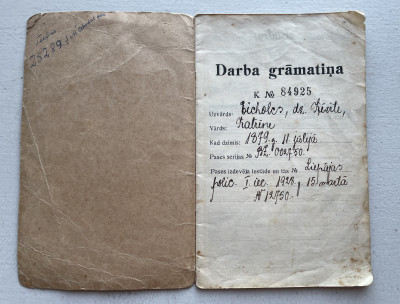 28289
Darba grāmatiņa
K № 84925
Uzvārds: Eicholcs, dz. Krēsle,
Vārds: Katrīne
Kad dzimis: 1879. g. 11. jūlijā
Pases serija № BZ. 002750.
Pases izdevēja iestāde un tās № Liepājas
polic. I. iec. 1928. g. 15. martā
№ 12750.